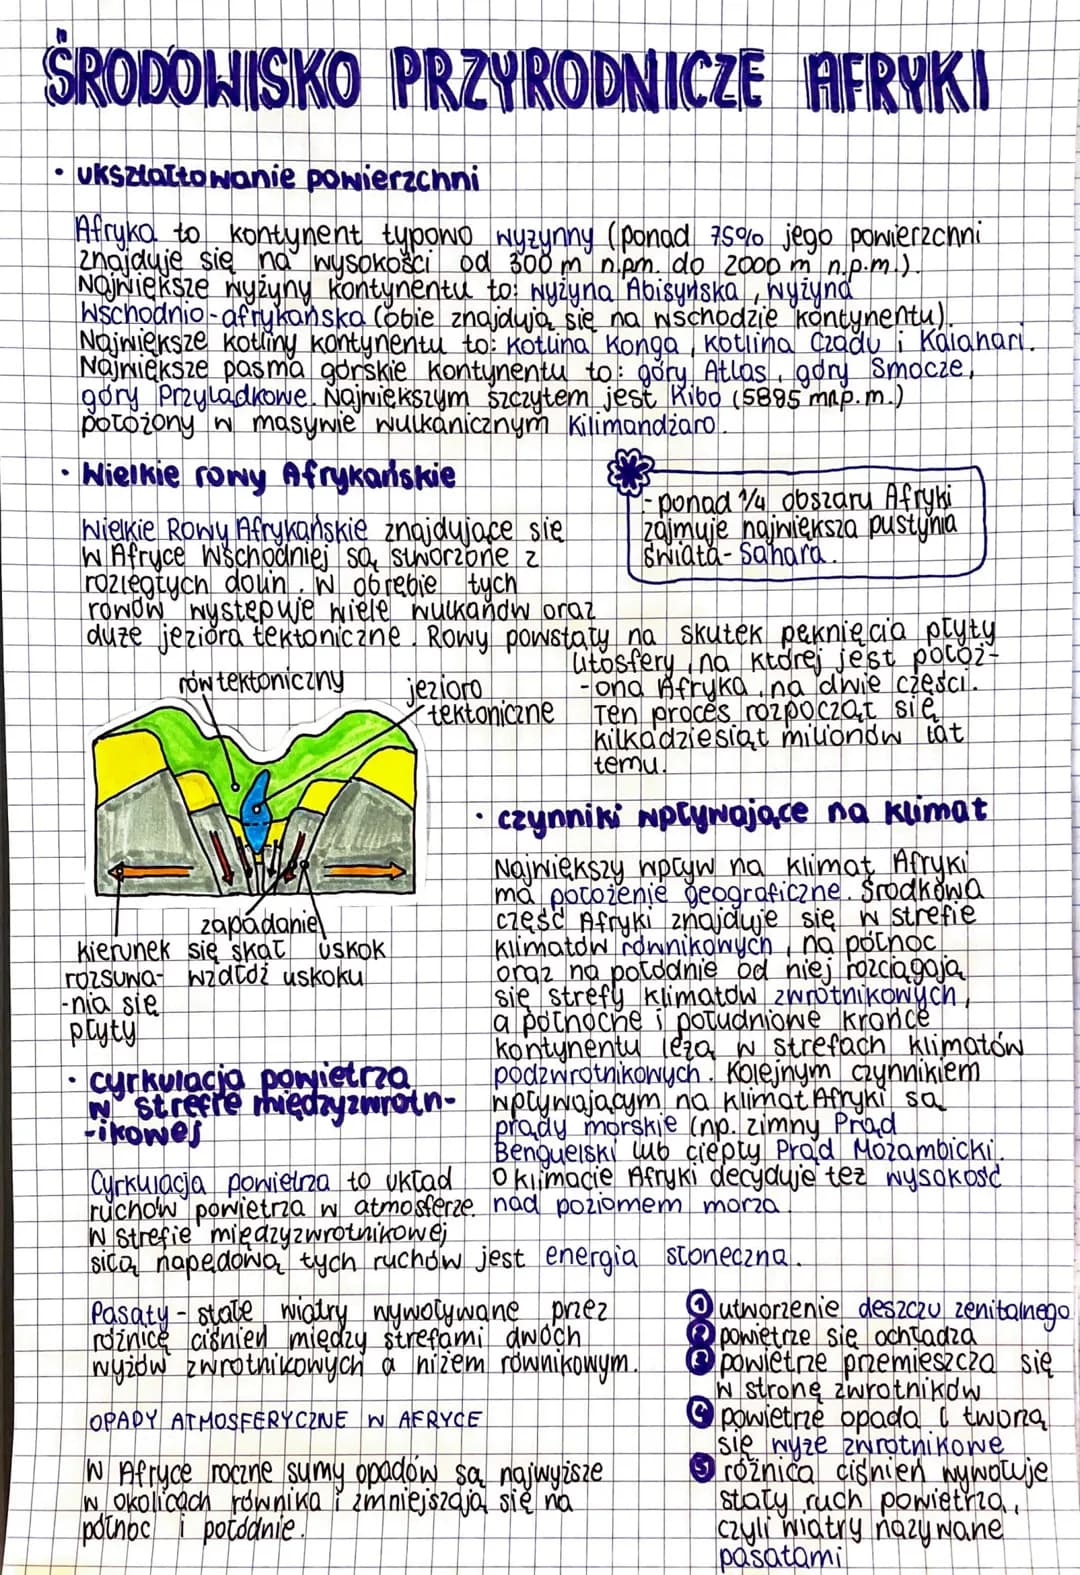 ŚRODOWISKO PRZYRODNICZE AFRYKI
• ukształtowanie powierzchni
Afryka to kontynent typowo wyżynny (ponad 75% jego powierzchni
znajduje się na wysokości od 300 m n.p.m. do 2000 m n.p.m.).
Największe wyżyny kontynentu to: wyżyna Abisyńska, wyżyna
Wschodnio-afrykańska (obie znajdują się na wschodzie kontynentu).
Największe kotliny kontynentu to: kotlina Konga, kotlina Czadu i Kalahari.
Największe pasma górskie kontynentu to: góry Atlas, góry Smocze,
góry Przylądkowe. Największym szczytem jest Kibo (5895 m n.p.m.)
położony w masywie wulkanicznym Kilimandżaro.
• Wielkie rowy Afrykańskie
- ponad 1/4 obszaru Afryki
zajmuje największa pustynia
świata - Sahara.
Wielkie Rowy Afrykańskie znajdujące się
w Afryce Wschodniej są stworzone z
rozległych dolin. W obrębie tych
rowów występuje wiele wulkanów oraz
duże jeziora tektoniczne. Rowy powstały na skutek pęknięcia płyty
litosfery, na której jest położ-
-ona Afryka, na dwie części.
Ten proces rozpoczął się
kilkadziesiąt milionów lat
temu.
rów tektoniczny
jezioro
tektoniczne
zapadanie
się skał
wzdłóż uskoku
uskok
kierunek
rozsuwa-
-nia się
płyty
• czynniki wpływające na klimat
Największy wpływ na klimat Afryki
ma położenie geograficzne. Środkowa
część Afryki znajduje się w strefie
klimatów równikowych, na północ
oraz na połódnie od niej rozciągają
się strefy klimatów zwrotnikowych,
a północne i południowe krańce
kontynentu leżą w strefach klimatów
podzwrotnikowych. Kolejnym czynnikiem
wpływającym na klimat Afryki są
prądy morskie (np. zimny Prąd
Benguelski lub ciepły Prąd Mozambicki.
O klimacie Afryki decyduje też wysokość
nad poziomem morza.
• cyrkulacja powietrza
w strefie międzyzwrotn-
-ikowej
Cyrkulacja powietrza to układ
ruchów powietrza w atmosferze.
W strefie międzyzwrotnikowej
siłą napędową tych ruchów jest energia słoneczna.
Pasaty - stałe wiatry wywoływane przez
różnicę ciśnień między strefami dwóch
wyżów zwrotnikowych a niżem równikowym.
OPADY ATMOSFERYCZNE W AFRYCE
W Afryce roczne sumy opadów są najwyższe
w okolicach równika i zmniejszają się na
północ i połódnie.
1 utworzenie deszczu zenitalnego
2 powietrze się ochładza
3 powietrze przemieszcza się
w stronę zwrotników
4 powietrze opada i tworzą
się wyże zwrotnikowe
5 różnica ciśnień wywołuje
stały ruch powietrza,
czyli wiatry nazywane
pasatami